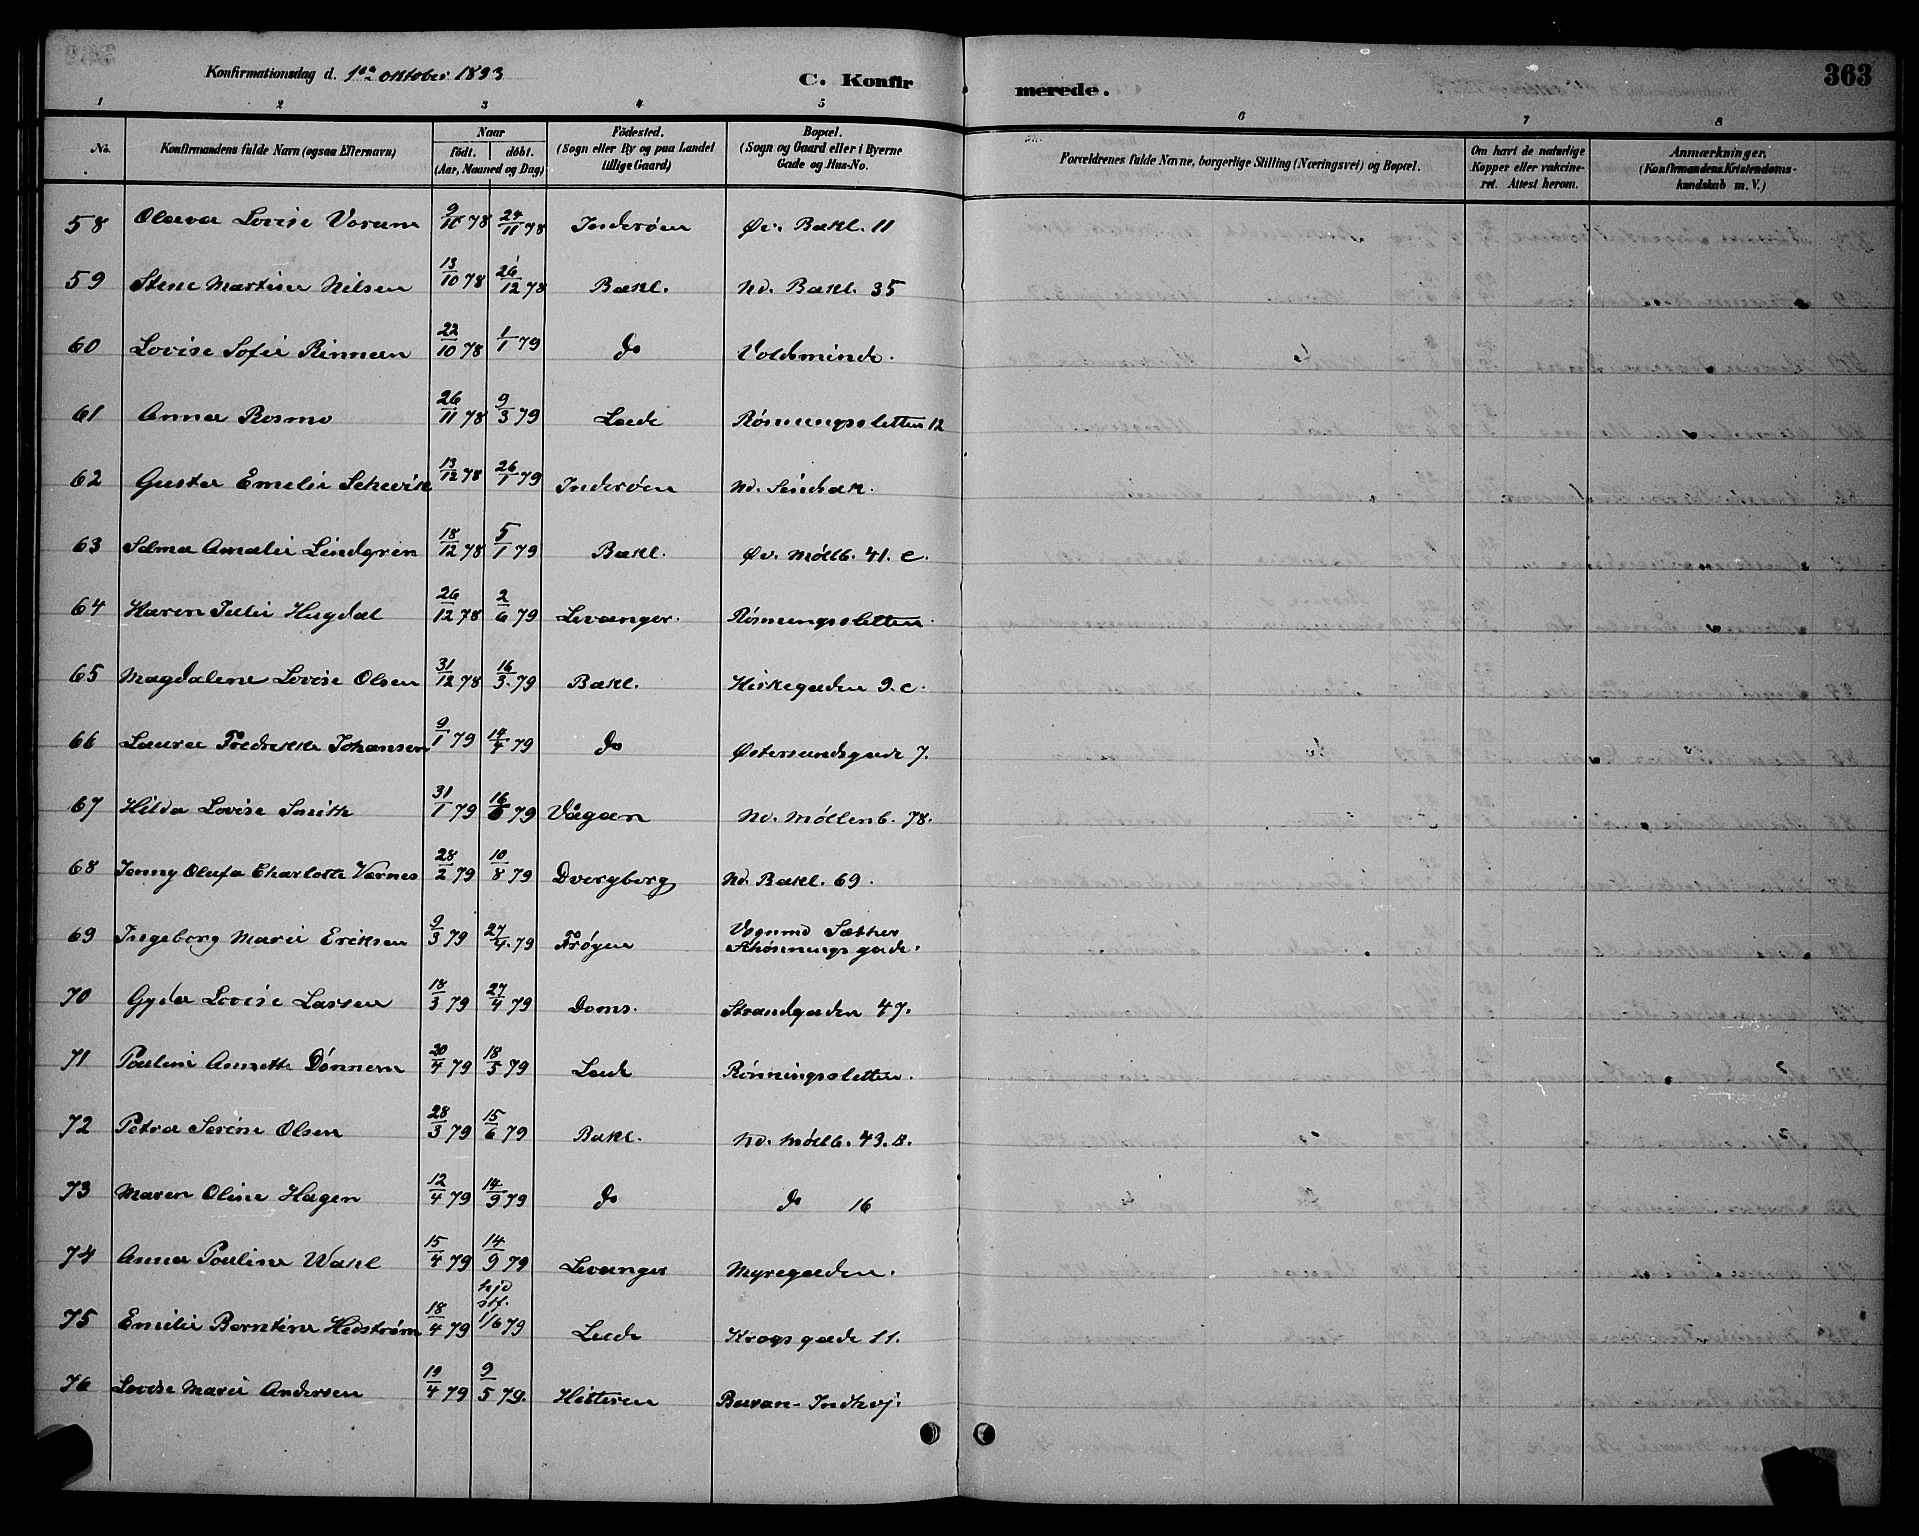 Konfirmationsdag d. 1ste oktober 1893
C. Konfirmerede.
363
1 2 3 4 5 6 7 8
No.
Konfirmandens fulde Navn (ogsaa Efternavn)
Naar
født. døbt.
(Aar, Maaned og Dag)
Fødested.
(Sogn eller By og paa Landet
tillige Gaard)
Bopæl.
(Sogn og Gaard eller i Byerne
Gade og Hus-No.
Forældrenes fulde Navne, borgerlige Stilling (Næringsvei) og Bopæl.
Om havt de naturlige
Kopper eller vakcine-
ret. Attest herom.
Anmærkninger.
(Konfirmandens Kristendoms-
kundskab m. V.)
58 Olava Lovise Voram 9/10 78 24/11 78 Inderøen Øv. Bakl. 11
59 Stine Martine Nilsen 13/10 78 26/12 78 Bakl. Nd. Bakl. 35
60 Lovise Sofie Rinnan 22/10 78 1/1 79 do Voldsminde.
61 Anna Rosmo 26/11 78 9/3 79 Lade Rønningsletten 12
62 Gusta Emelie Schevik 13/12 78 26/1 79 Inderøen Nd.
63 Selma Amalie Lindgren 18/12 78 5/1 79 Bakl. Øv. Møllb. 41. c.
64 Karen Julie Hugdal 26/12 78 2/6 79 Levanger. Rønningsletten.
65 Magdalene Lovise Olsen 31/12 78 16/3. 79 Bakl. Kirkegaden 9. c.
66 Laura Fredrikke Johansen 9/1 79 14/4 79 do Østersundsgade 7.
67 Hilda Lovise Smith 31/1 79 16/6 79 Vågan Nd. Møllenb. 78.
68 Jenny Olufa Charlotte Værnes 28/2 79 10/8 79 Dvergberg Nd. Bakl. 69.
69 Ingeborg Marie Eriksen 9/3 79 27/4. 79 Frøyen Vognmd Sæther
Schønningsgade.
70 Gyda Lovise Lassen 18/3 79 27/4 79 Doms. Strandgaden 47.
71 Pauline Annette Dønnem 20/4 79 18/5 79 Lade Rønningsletten.
72 Petra Serine Olsen 28/3 79 15/6 79 Bakl. Nd. Møllb. 43. B.
73 Maren Oline Hagen 12/4 79 14/9 79 do do 16
74 Anna Pauline Wahl 15/4 79 14/9 79 Levanger Myregaden.
75 Emilie Berntine Hedstrøm 18/4 79 hjd stf. 1/6 79 Lade Krogsgade 11.
76 Lovise Marie Andersen 19/4 79 9/5 79. Hitteren Buran-Indhvj.